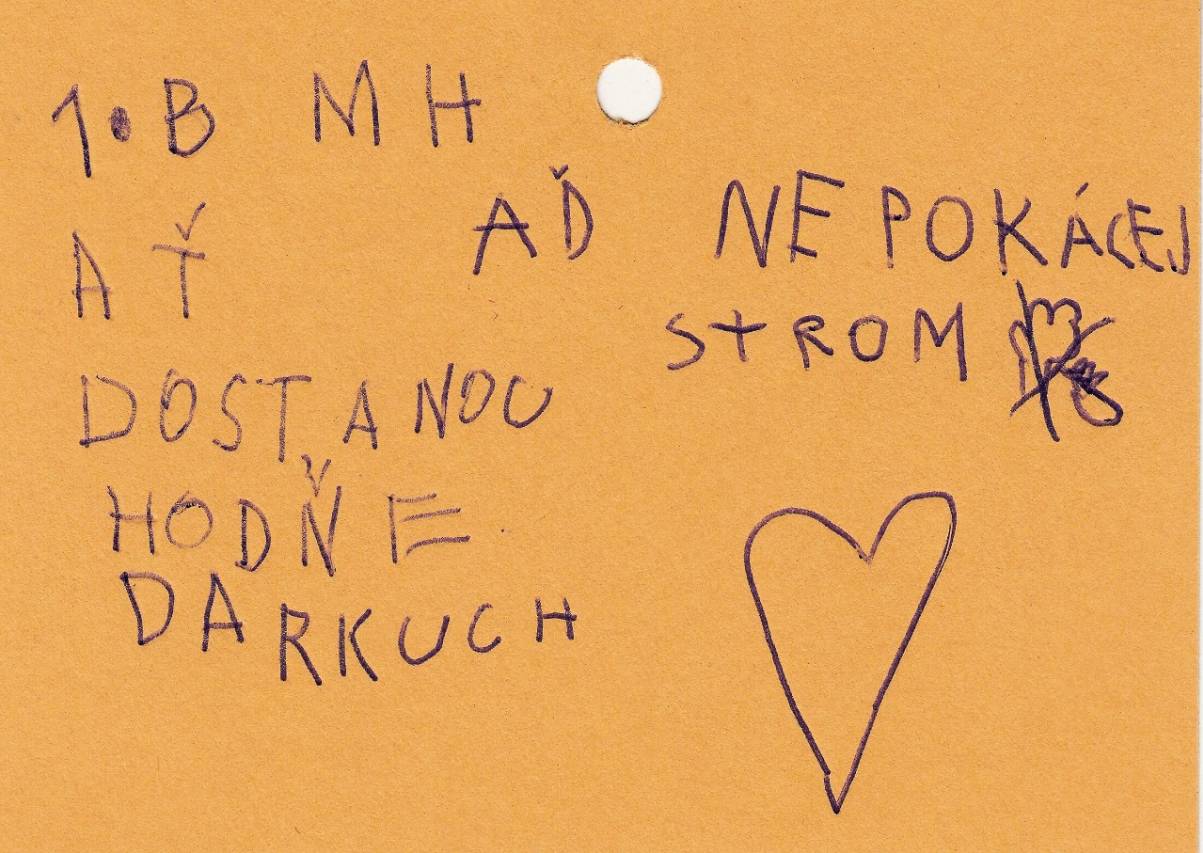 1. B MH
AŤ
DOSTANOU
HODŇE
DARKUCH
AĎ NEPOKÁCEJ
STROM